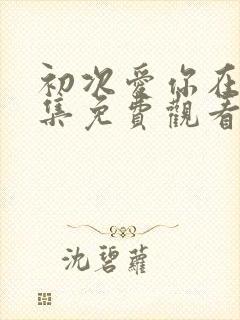 初次愛你在
集免費觀看
沈碧蘿